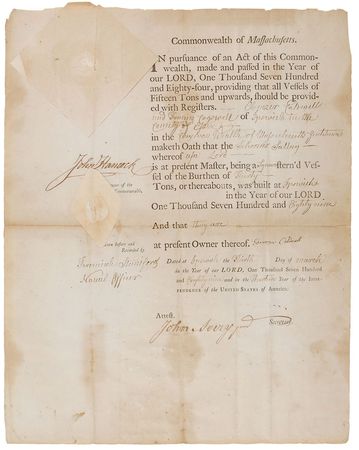 Commonwealth of Massachusetts.
IN pursuance of an Act of this Common-
wealth, made and passed in the Year of
our LORD, One Thousand Seven Hundred
and Eighty-four, providing that all Vessels of
Fifteen Tons and upwards, should be provid-
ed with Registers.
and of Ipswich in the
County of Essex
in the Commonwealth of Massachusetts
maketh Oath that the Schooner
whereof
is at present Master, being a stern'd Ves-
sel of the Burthen of
Tons, or thereabouts, was built at Ipswich
in the Year of our LORD
One Thousand Seven Hundred and Eighty nine
And that they are
at present Owner thereof.
Dated at Ipswich the Day of March
in the Year of our LORD, One Thousand Seven Hundred
and Eighty nine and in the Year of the Inde-
pendence of the UNITED STATES of America.
Attest.
John Avery Secretary
John Hancock
Governor of the
Commonwealth.
Sworn before and
Recorded by
Jeremiah
Naval Officer